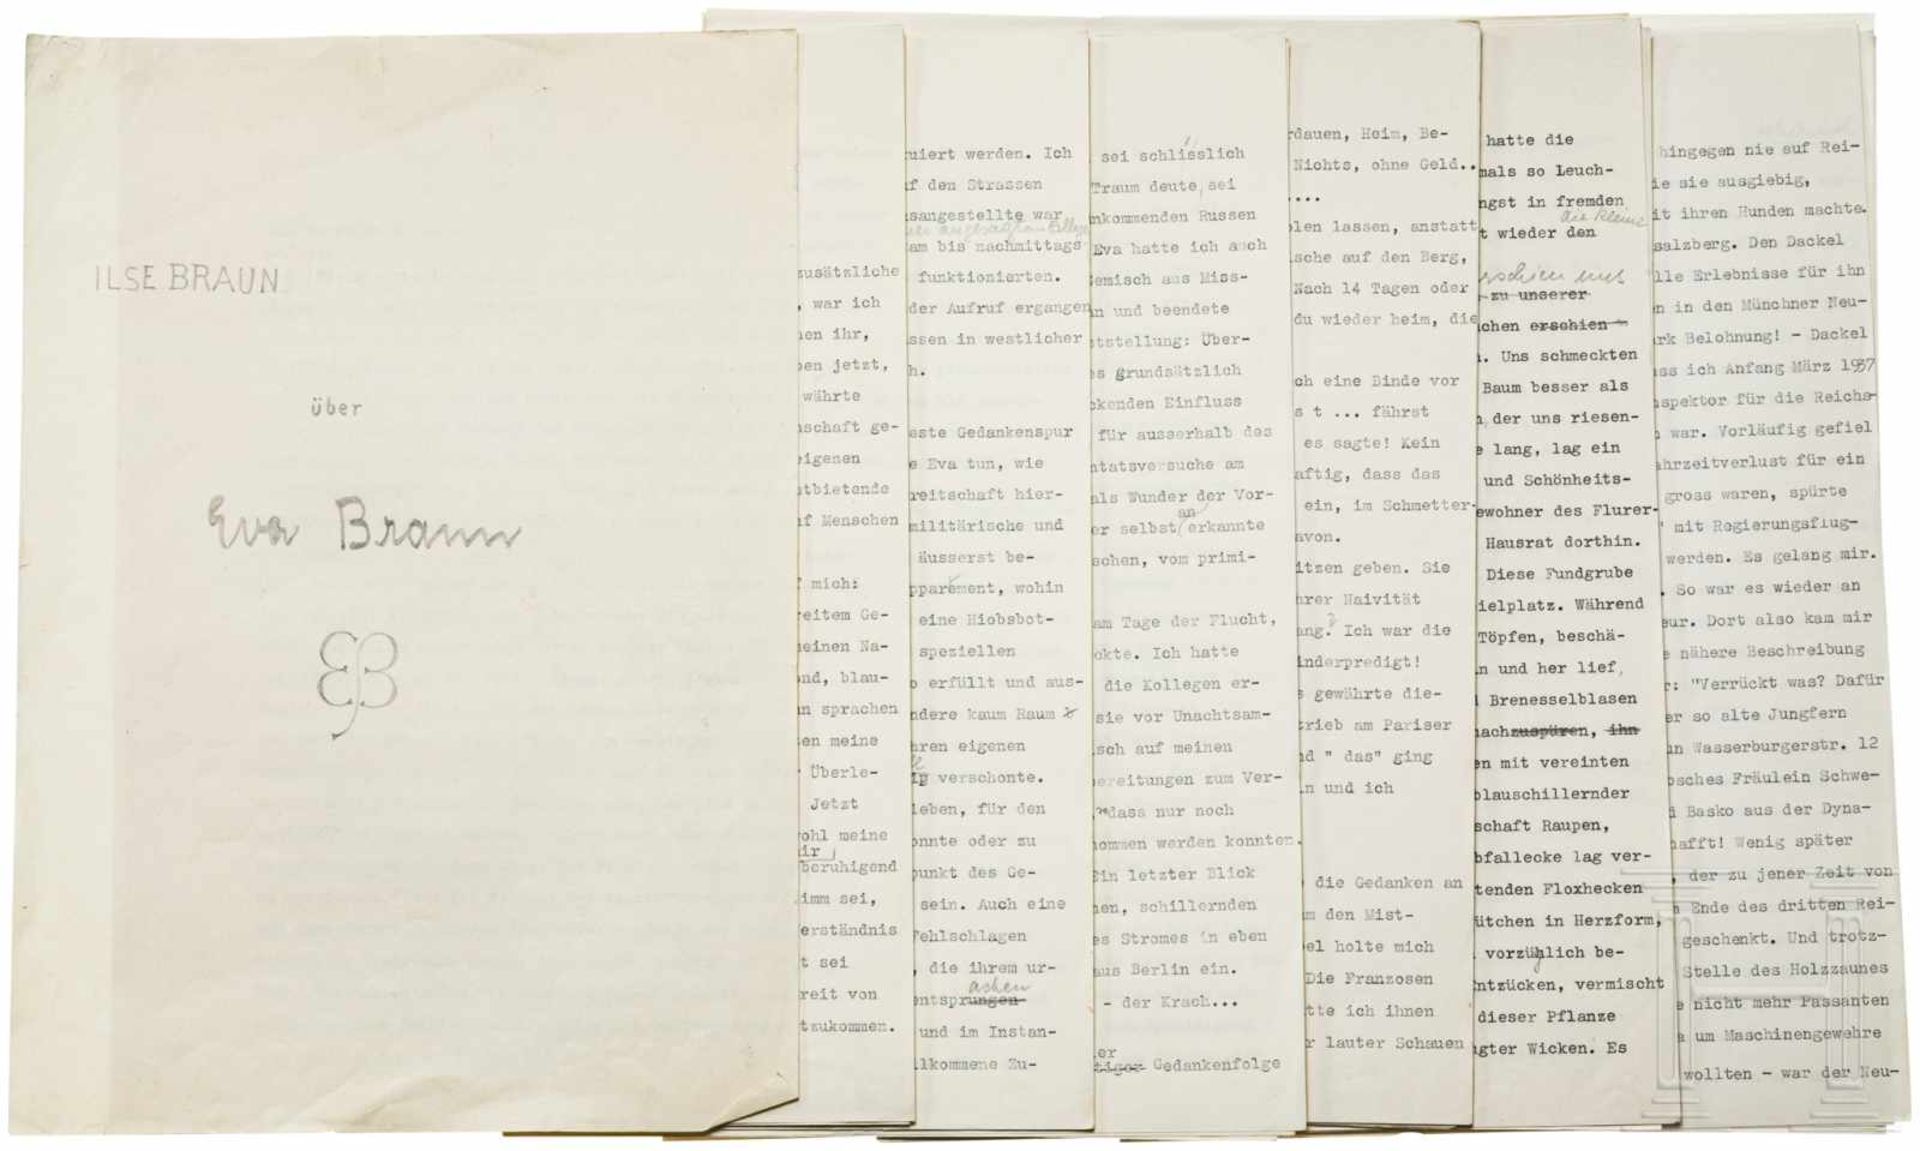 ILSE BRAUN
über
Eva Braun
EB
zusätzliche
, war ich
en ihr,
en jetzt,
währte
schaft ge-
eigenen
tbietende
f Menschen
mich:
reitem Ge-
einen Na-
nd, blau-
n sprachen
en meine
Überle-
Jetzt
ohl meine
ir
beruhigend
imm sei,
erständnis
t sei
reit von
tzukommen.
uiert werden. Ich
f den Strassen
sangestellte war
am bis nachmittags
funktionierten.
der Aufruf ergangen
ssen in westlicher
h.
este Gedankenspur
e Eva tun, wie
reitschaft hier-
militärische und
äusserst be-
ppartement, wohin
eine Hiobsbot-
speziellen
o erfüllt und aus-
ndere kaum Raum
ren eigenen
verschonte.
leben, für den
nnte oder zu
punkt des Ge-
sein. Auch eine
Fehlschlagen
, die ihrem ur-
ashen
entsprungen
und im Instan-
lkommene Zu-
sei schlisslich
Traum deute, sei
nkommenden Russen
Eva hatte ich auch
emisch aus Miss-
n und beendete
tstellung: Über-
s grundsätzlich
ckenden Einfluss
für ausserhalb des
ntatsversuche am
als Wunder der Vor-
an
er selbst erkannte
schen, vom primi-
am Tage der Flucht,
okte. Ich hatte
die Kollegen er-
sie vor Unachtsam-
sch auf meinen
ereitungen zum Ver-
dass nur noch
ommen werden konnten.
Ein letzter Blick
en, schillernden
es Stromes in eben
aus Berlin ein.
- der Krach...
er
tiger Gedankenfolge
rdauen, Heim, Be-
Nichts, ohne Geld..
....
len lassen, anstatt
sche auf den Berg,
Nach 14 Tagen oder
du wieder heim, die
ch eine Binde vor
s t ... fährst
es sagte! Kein
aftig, dass das
ein, im Schmetter-
avon.
itzen geben. Sie
hrer Naivität
ang? Ich war die
inderpredigt!
s gewährte die-
trieb am Pariser
d " das" ging
n und ich
die Gedanken an
m den Mist-
el holte mich
Die Franzosen
tte ich ihnen
r lauter Schauen
hatte die
mals so Leuch-
ngst in fremden
die kleine
t wieder den
erschien uns
zu unserer
chen erschien
. Uns schmeckten
Baum besser als
, der uns riesen-
e lang, lag ein
und Schönheits-
ewohner des Flurer-
Hausrat dorthin.
Diese Fundgrube
ielplatz. Während
Töpfen, beschä-
n und her lief,
Brenesselblasen
nachzuspüren, ihn
en mit vereinten
blauschillernder
schaft Raupen,
bfallecke lag ver-
tenden Floxhecken
ütchen in Herzform,
vorzüglich be-
ntzücken, vermischt
dieser Pflanze
gter Wicken. Es
hingegen nie auf Rei-
ie sie ausgiebig,
it ihren Hunden machte.
salzberg. Den Dackel
lle Erlebnisse für ihn
n in den Münchner Neu-
rk Belohnung! - Dackel
ss ich Anfang März 1937
spektor für die Reichs-
war. Vorläufig gefiel
hrzeitverlust für ein
gross waren, spürte
mit Regierungsflug-
werden. Es gelang mir.
. So war es wieder an
eur. Dort also kam mir
e nähere Beschreibung
r: "Verrückt was? Dafür
er so alte Jungfern
n Wasserburgerstr. 12
sches Fräulein Schwe-
Basko aus der Dyna-
afft! Wenig später
, der zu jener Zeit von
Ende des dritten Rei-
geschenkt. Und trotz-
Stelle des Holzzaunes
e nicht mehr Passanten
um Maschinengewehre
wollten - war der Neu-